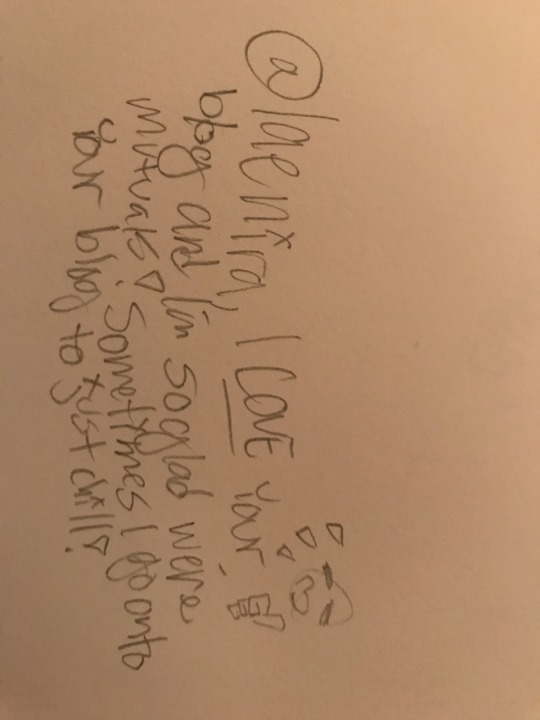 @laenira, I LOVE your
blog and I'm so glad we're
mutuals! Sometimes I go onto
your blog to just chill!